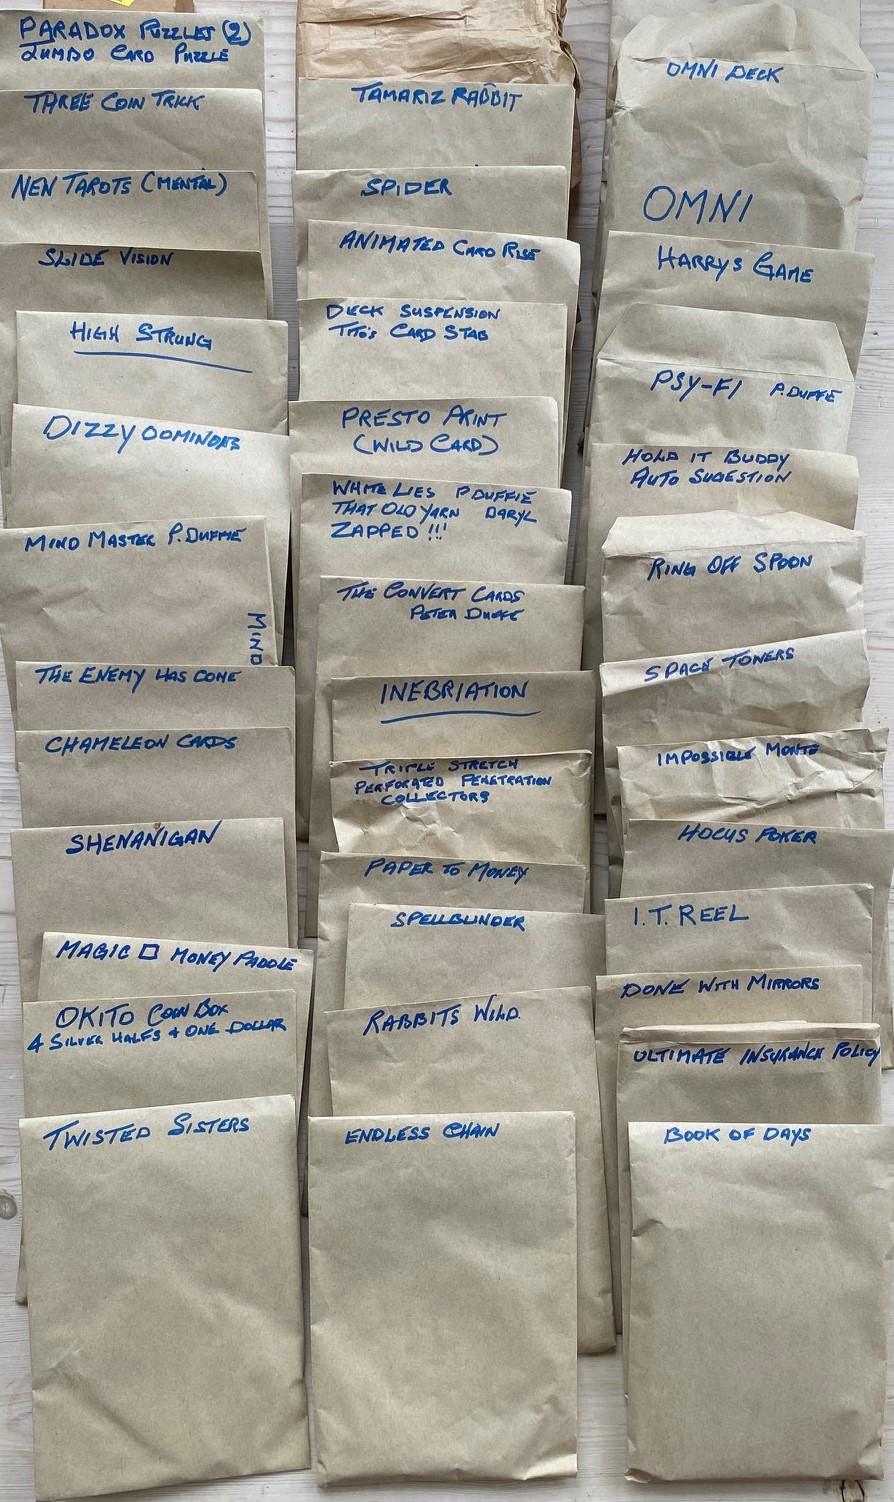 PARADOX PUZZLES (2)
JUMBO CARD PUZZLE
THREE COIN TRICK
NEN TAROTS (MENTAL)
SLIDE VISION
HIGH STRUNG
DIZZY DOMINOES
MIND MASTER P. DUFFIE
MIND
THE ENEMY HAS CONE
CHAMELEON CARDS
SHENANIGAN
MAGIC □ MONEY PADDLE
OKITO COIN BOX
4 SILVER HALFS + ONE DOLLAR
TWISTED SISTERS
TAMARIZ RABBIT
SPIDER
ANIMATED CARD RISE
DECK SUSPENSION
TITO'S CARD STAB
PRESTO PRINT
(WILD CARD)
WHITE LIES P DUFFIE
THAT OLD YARN DARYL
ZAPPED !!!
THE CONVERT CARDS
PETER DUFFIE
INEBRIATION
TRIPLE STRETCH
PERFORATED PENETRATION
COLLECTORS
PAPER TO MONEY
SPELLBUNDER
RABBITS WILD.
ENDLESS CHAIN
OMNI DECK
OMNI
HARRYS GAME
PSY-FI P. DUFFIE
HOLD IT BUDDY
AUTO SUGESTION
RING OFF SPOON
SPACE TOWERS
IMPOSSIBLE MONTE
HOCUS POKER
I.T. REEL
DONE WITH MIRRORS
ULTIMATE INSURANCE POLICY
BOOK OF DAYS